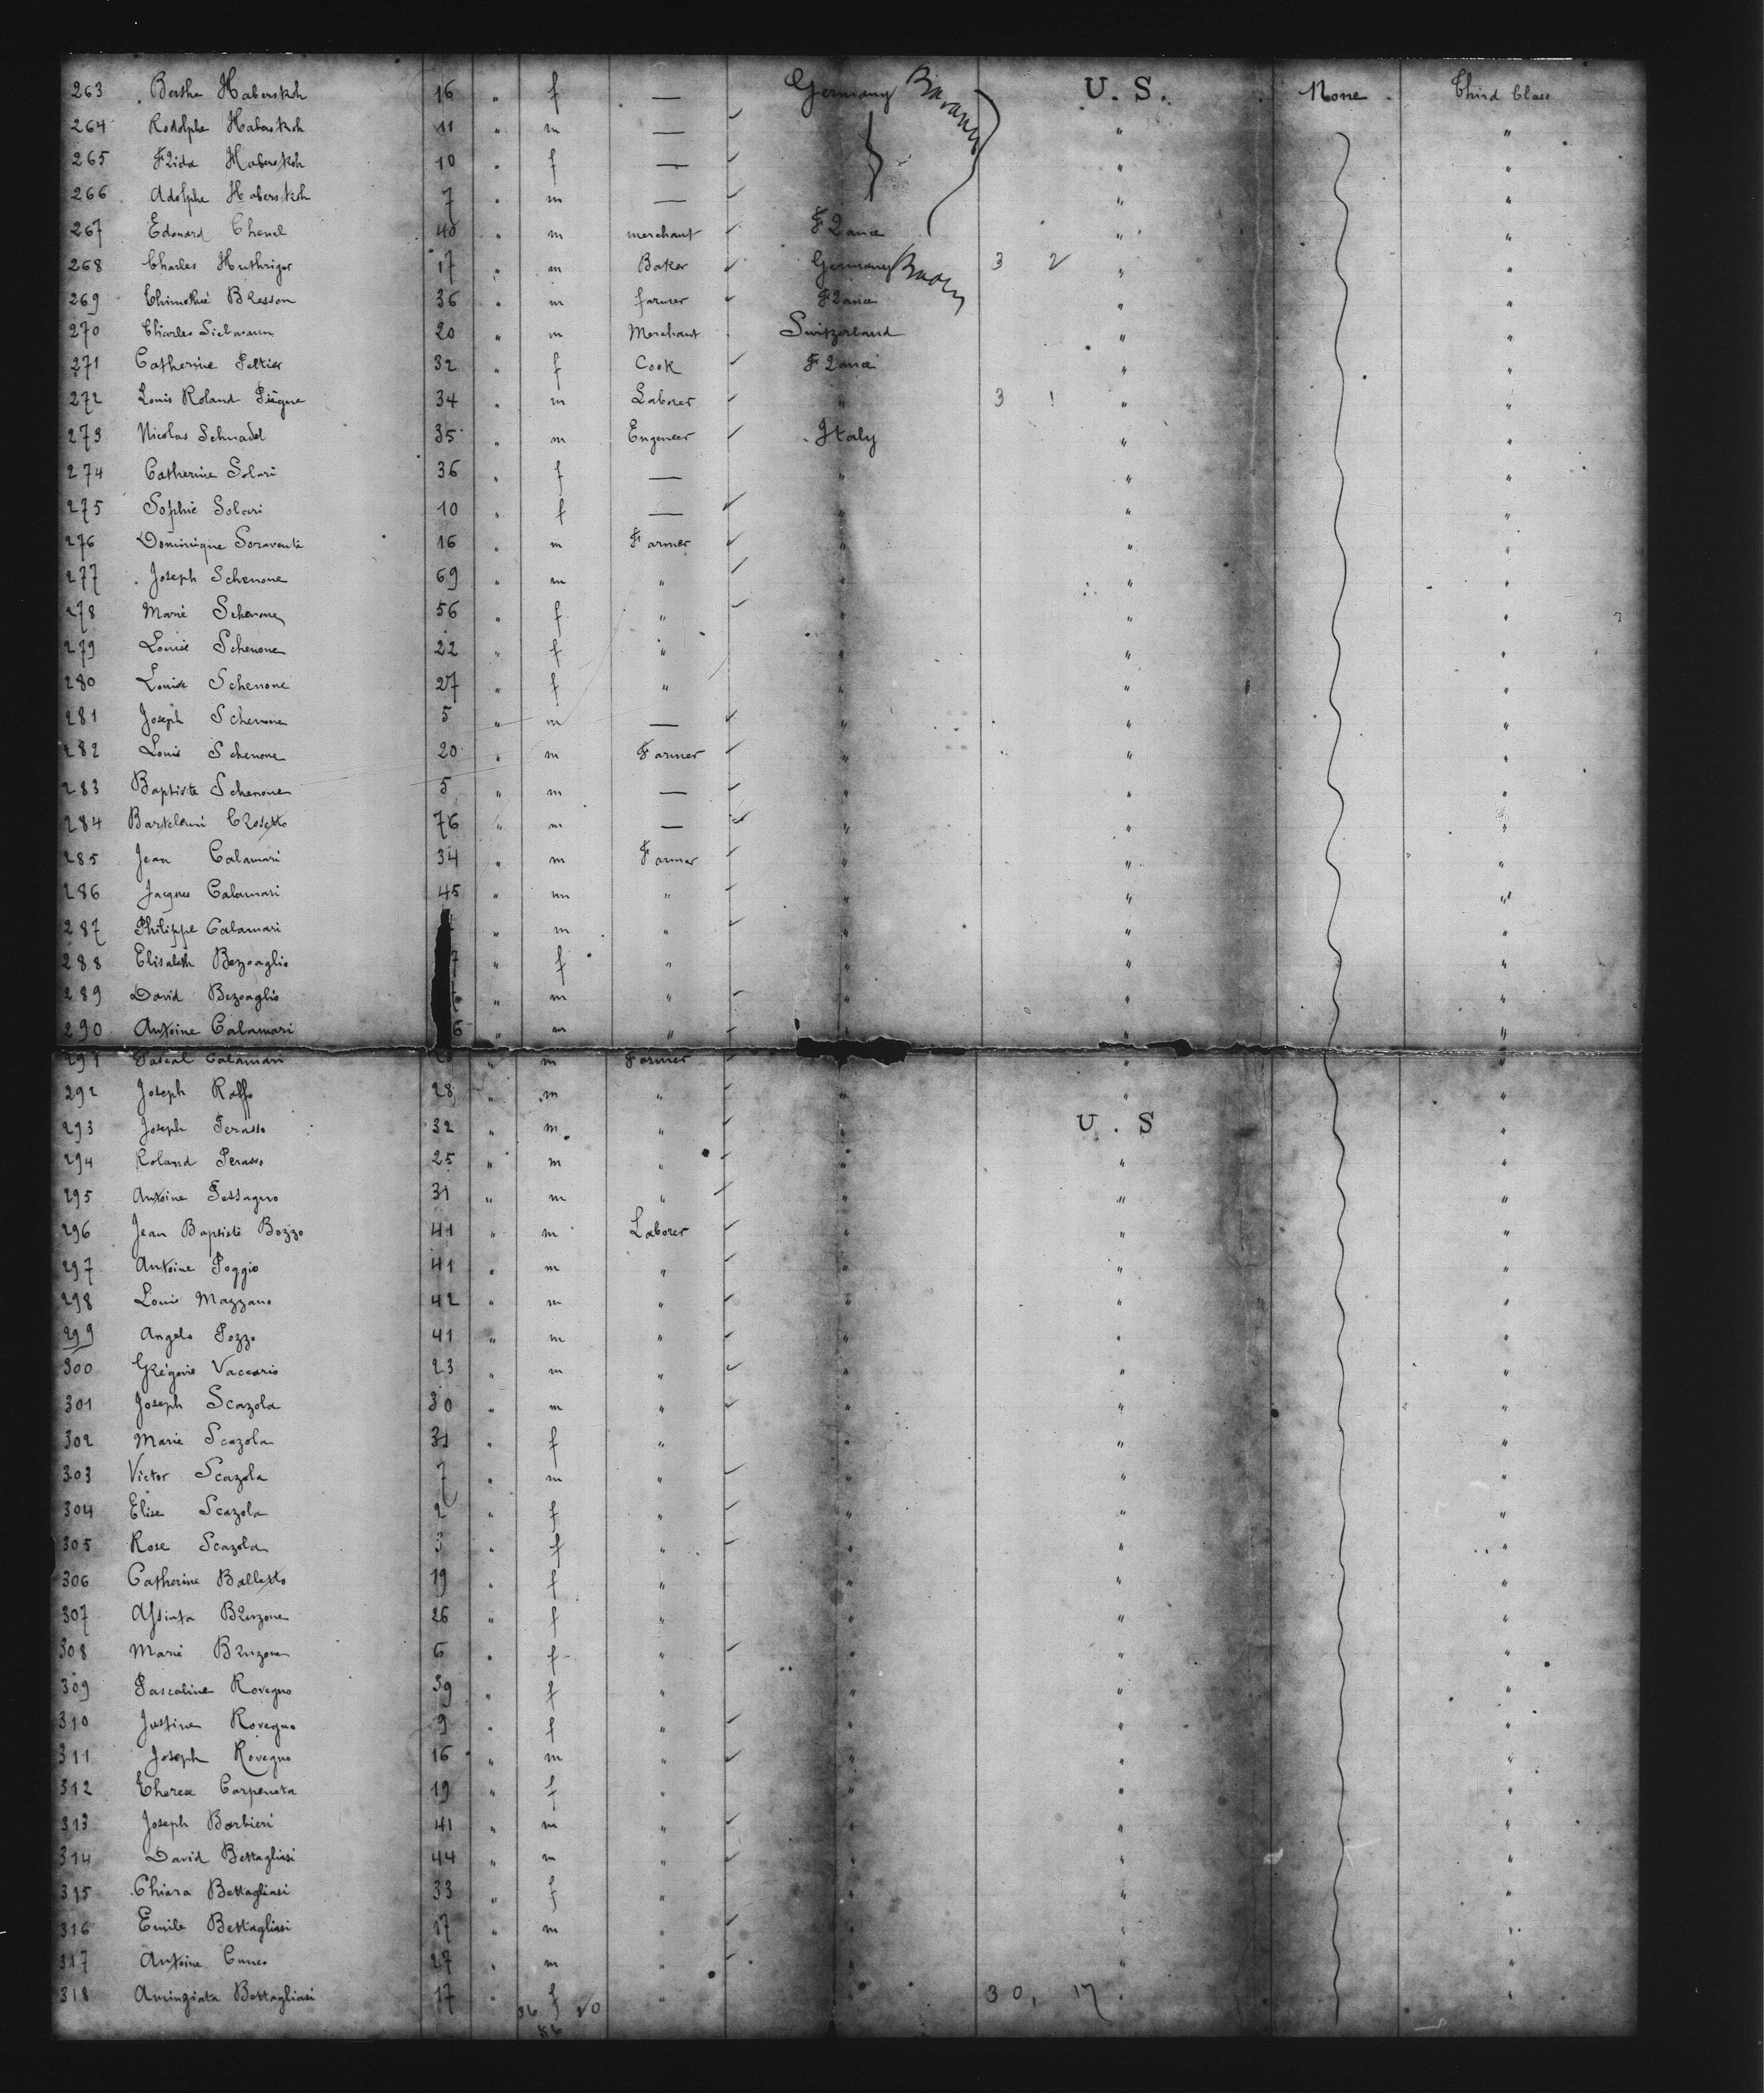 263 Berthe Haberskoh 16 " f — Germany Bavaria U. S. None Third Class
264 Rodolphe Haberskoh 11 " m — " "
265 Frida Haberskoh 10 " f — " "
266 Adolphe Haberskoh 7 " m — " "
267 Edouard Chenel 40 " m merchant France " "
268 Charles Huthriger 17 " m Baker Germany 3 2 " "
269 Thimothé Bresson 36 " m farmer France " "
270 Charles 20 " m Merchant Switzerland " "
271 Catherine Peltier 32 " f Cook France " "
272 Louis Roland Piègne 34 " m Laborer " 3 1 " "
273 Nicolas Schnadel 35 " m Engeneer Italy " "
274 Catherine Solari 36 " f — " " "
275 Sophie Solari 10 " f — " " "
276 Dominique Soravente 16 " m Farmer " " "
277 Joseph Schenone 69 " m " " " "
278 Marie Schenone 56 " f " " " "
279 Louise Schenone 22 " f " " " "
280 Louise Schenone 27 " f " " " "
281 Joseph Schenone 5 " m — " " "
282 Louis Schenone 20 " m Farmer " " "
283 Baptiste Schenone 5 " m — " " "
284 Bartelomi Crosetto 76 " m — " " "
285 Jean Calamari 34 " m Farmer " " "
286 Jacques Calamari 45 " m " " " "
287 Philippe Calamari " m " " " "
288 Elisabeth Bezoaglio 7 " f " " " "
289 David Bezoaglio " m " " " "
290 Antoine Calamari 6 " m " " " "
291 Pascal Calamari " m Farmer " "
292 Joseph Raffo 28 " m " " " "
293 Joseph Perasso 32 " m " " U. S "
294 Roland Perasso 25 " m " " " "
295 Antoine Pessagno 31 " m " " " "
296 Jean Baptiste Bozzo 41 " m Laborer " " "
297 Antoine Poggio 41 " m " " " "
298 Louis Mazzano 42 " m " " " "
299 Angelo Pozzo 41 " m " " " "
300 Grégoire Vaccario 23 " m " " " "
301 Joseph Scazola 30 " m " " " "
302 Marie Scazola 31 " f " " " "
303 Victor Scazola 7 " m " " " "
304 Elise Scazola 2 " f " " " "
305 Rose Scazola 3 " f " " " "
306 Catherine Balletto 19 " f " " " "
307 Assinta Bruzone 26 " f " " " "
308 Marie Bruzone 6 " f " " " "
309 Pascaline Rovegno 39 " f " " " "
310 Justine Rovegno 9 " f " " " "
311 Joseph Rovegno 16 " m " " " "
312 Therese Carpeneta 19 " f " " " "
313 Joseph Barbieri 41 " m " " " "
314 David Bettagliasi 44 " m " " " "
315 Chiara Bettagliasi 33 " f " " " "
316 Emile Bettagliasi 17 " m " " " "
317 Antoine Cuneo 27 " m " " " "
318 Amingiata Bottagliasi 17 " f " " 30, 17 " "
36 20
56